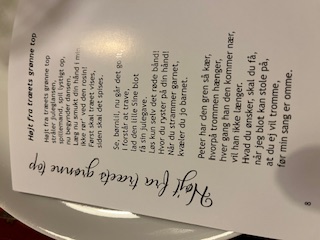 Højt fra træets grønne top
Højt fra træets grønne top
Højt fra træets grønne top
stråler juleglansen,
spillemand, spil lystigt op,
nu begynder dansen.
Læg nu smukt din hånd i min,
ikke rør' ved den rosin!
Først skal træet vises,
siden skal det spises.
Se, børnlil, nu går det godt,
I forstår at trave,
lad den lille Sine blot
få sin julegave.
Løs kun selv det røde bånd!
Hvor du ryster på din hånd!
Når du strammer garnet,
kvæler du jo barnet.
Peter har den gren så kær,
hvorpå trommen hænger,
hver gang han den kommer nær,
vil han ikke længer.
Hvad du ønsker, skal du få,
når jeg blot kan stole på,
at du ej vil tromme,
før min sang er omme.
8